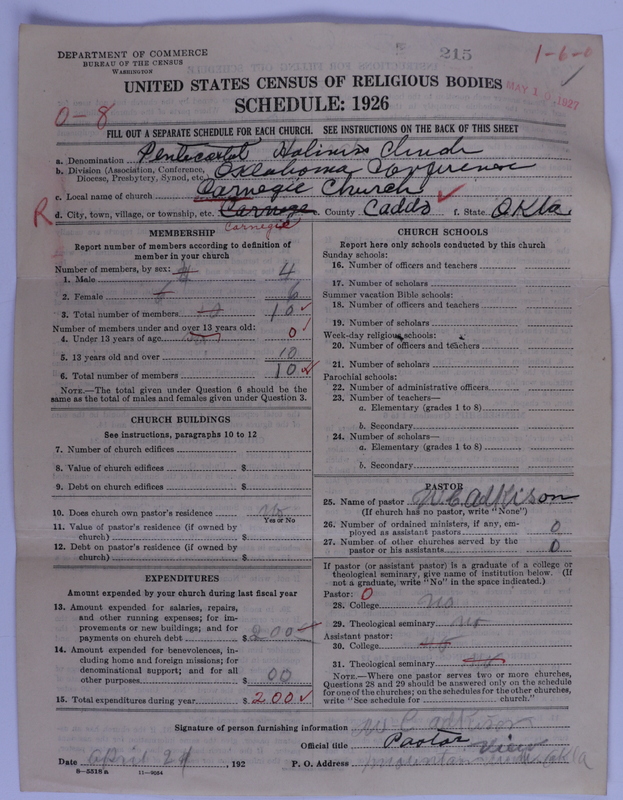 DEPARTMENT OF COMMERCE
BUREAU OF THE CENSUS
WASHINGTON
215
1-6-0
UNITED STATES CENSUS OF RELIGIOUS BODIES
MAY 10 1927
SCHEDULE: 1926
0-8
FILL OUT A SEPARATE SCHEDULE FOR EACH CHURCH. SEE INSTRUCTIONS ON THE BACK OF THIS SHEET
a. Denomination Pentecostal Holiness Church
b. Division (Association, Conference, Diocese, Presbytery, Synod, etc.) Oklahoma Conference
c. Local name of church Carnegie Church
R d. City, town, village, or township, etc. Carnegie County Caddo f. State Okla.
Carnegie
MEMBERSHIP
Report number of members according to definition of
member in your church
Number of members, by sex:
1. Male 4
2. Female 6 6
3. Total number of members 10 10
Number of members under and over 13 years old:
4. Under 13 years of age 0
5. 13 years old and over 10
6. Total number of members 10
NOTE.—The total given under Question 6 should be the
same as the total of males and females given under Question 3.
CHURCH BUILDINGS
See instructions, paragraphs 10 to 12
7. Number of church edifices
8. Value of church edifices $
9. Debt on church edifices $
10. Does church own pastor's residence No
Yes or No
11. Value of pastor's residence (if owned by
church) $
12. Debt on pastor's residence (if owned by
church) $
EXPENDITURES
Amount expended by your church during last fiscal year
13. Amount expended for salaries, repairs,
and other running expenses; for im-
provements or new buildings; and for
payments on church debt $ 200
14. Amount expended for benevolences, in-
cluding home and foreign missions; for
denominational support; and for all
other purposes $ 00
15. Total expenditures during year $ 200
CHURCH SCHOOLS
Report here only schools conducted by this church
Sunday schools:
16. Number of officers and teachers
17. Number of scholars
Summer vacation Bible schools:
18. Number of officers and teachers
19. Number of scholars
Week-day religious schools:
20. Number of officers and teachers
21. Number of scholars
Parochial schools:
22. Number of administrative officers
23. Number of teachers—
a. Elementary (grades 1 to 8)
b. Secondary
24. Number of scholars—
a. Elementary (grades 1 to 8)
b. Secondary
PASTOR
25. Name of pastor W. C. Adkison
(If church has no pastor, write "None")
26. Number of ordained ministers, if any, em-
ployed as assistant pastors 0
27. Number of other churches served by the
pastor or his assistants 0
If pastor (or assistant pastor) is a graduate of a college or
theological seminary, give name of institution below. (If
not a graduate, write "No" in the space indicated.)
Pastor: 0
28. College No
29. Theological seminary No
Assistant pastor:
30. College
31. Theological seminary
NOTE.—Where one pastor serves two or more churches,
Questions 28 and 29 should be answered only on the schedule
for one of the churches; on the schedules for the other churches,
write "See schedule for church."
Signature of person furnishing information W C Adkison
Official title Pastor
Date April 24, 192 P. O. Address Mountain View Okla
8—5518a 11—9554